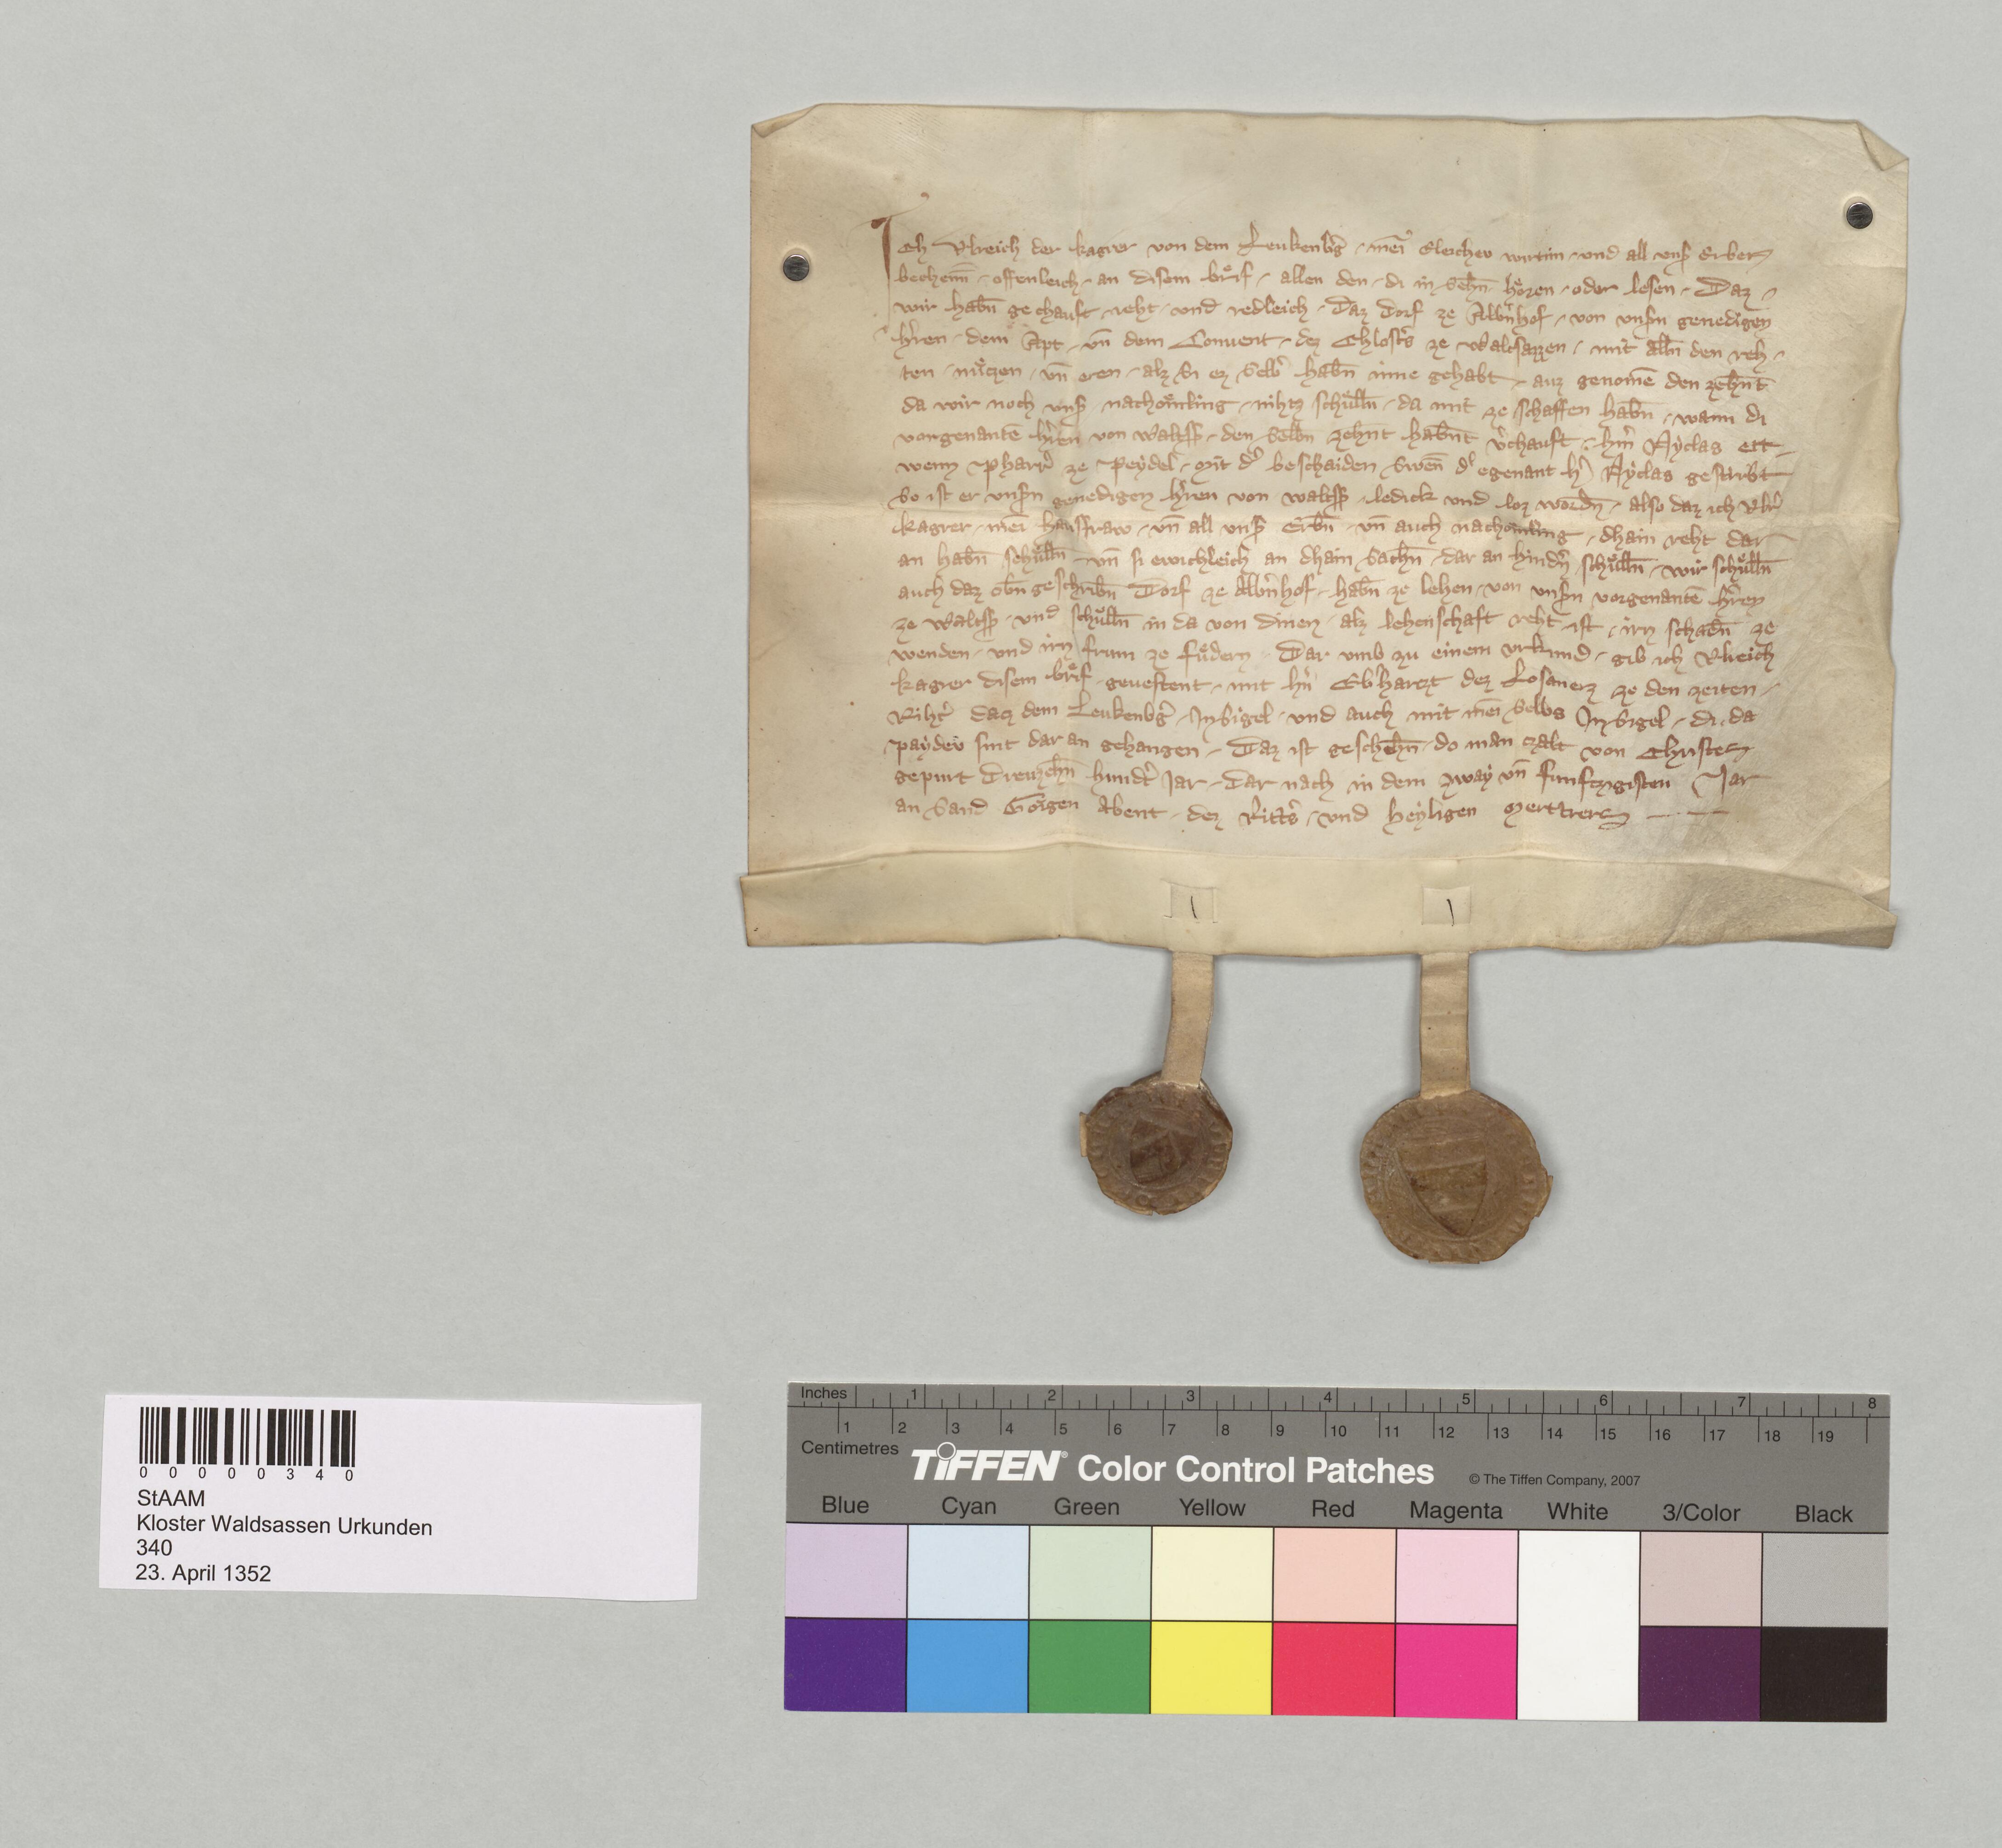 Ich Vlreich der kagrer von dem Leukenbg̃ mei᷑ Eleichev wirtim und all vnsʾ Erben
bechenn̄ offenleich an disem brif allen den di in sehn̄ hoͤren oder lesen Daz
wir habn̄ gechauft reht und redleich Daz Dorf ze Albn̄hof von vnsn̄ genedigen
hʾren dem Apt vn̄ dem Convent dez Chlostʾs ze Waltsazzen mit alln̄ den reh
ten nuͤtzen vn̄ eren alz si ez selbʾ habn̄ inne gehabt auz genomē den zehn̄t
da wir noch vnsʾ nachoͤmling nihtz schuͤlln̄ da mit ze schaffen habn̄ wann di
vorgenantē hʾren von waltss̄ den selbn̄ zehn̄t habn̄t vʾchauft hʾn Nyclas ett
wenn Pharrʾ ze Peydelʾ mit dʾ beschaiden swen̄ dʾ egenant hʾ Nyclas gestirbt
so ist er vnsn̄ genedigen hʾren von waltss̄ ledick und loz wordn̄ also daz ich Vlrʾ
kagrer mei᷑ hausfraw vn̄ all vnsʾ Erbn̄ vn̄ auch nachoͤmling dhain reht dar
an habn̄ schuͤlln̄ vn̄ si ewichleich an dhain sachn̄ dar an hindʾn schuͤlln̄ wir schuͤlln̄
auch daz obn̄geschribn̄ Dorf ze Albn̄hof habn̄ ze lehen von vnsn̄ vorgenantē hʾren
ze waltss̄ und schuͤlln̄ in da von dinen alz lehenschaft reht ist irn schadn̄ ze
wenden und irn frum ze fuͤdern Dar vmb zu einem vrkund gib ich Vlreich
kagrer disem brif gevestent mit hʾn Ebʾhartzt dez Losanerz ze den zeiten
Rihtʾ datz dem Leukenbgʾ Insigel und auch mit mei᷑ selbs Insigel di da
paydev sint dar an gehangen Daz ist geschehn̄ do man zalt von Christes
gepurt Dreuzehn̄ hundʾt Jar dar nach in dem zway vn̄ funftzigisten Jar
an Sand Goͤrgen Abent dez Rittʾs und heyligen Mertrers
StAAM
Kloster Waldsassen Urkunden
340
23. April 1352
0 0 0 0 0 3 4 0
Inches 1 2 3 4 5 6 7 8
1 2 3 4 5 6 7 8 9 10 11 12 13 14 15 16 17 18 19
Centimetres
TIFFEN® Color Control Patches © The Tiffen Company, 2007
Blue Cyan Green Yellow Red Magenta White 3/Color Black